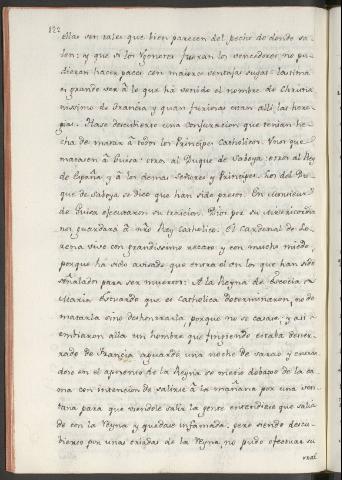 122
ellas son tales que bien parecen del pecho de donde sa-
len: y que si los Ygonotes fueran los vencedores no pu-
dieran hacer paces con maiores ventajas suyas: lastima
es grande ver à lo que hà venido el nombre de Christia-
nissimo de Francia y quan furiosas estan alli las here-
gias. Hase descubierto una conjuracion que tenian he-
cha de matar à todos los Principes Catholicos. Unos que
matasen à Guisa: otros al Duque de Saboya: otros al Rey
de España y à los demas Señores y Principes. Los del Du-
que de Saboya se dice que han sido presos. En
de Guisa efectuaron su traicion. Dios por su misericordia
nos guardarà à nro Rey Catholico. El Cardenal de Lo-
rena vive con grandissimo recato y con mucho miedo,
porque hà sido avisado que entra el en los que han sido
señalados para ser muertos: A la Reyna de Escocia
Maria Estuardo que es Catholica determinaron, no de
matarla sino deshonrrarla, porque no se casase: y assi
embiaron alla un hombre que fingiendo estaba dester-
rado de Francia aguardò una noche de sarao y entran-
dose en el aposento de la Reyna se metio debaxo de la ca-
ma con intencion de salirse à la mañana por una ven-
tana para que viendole salir la gente entendiese que salia
de con la Reyna y quedase infamada: pero siendo descu-
bierto por unas criadas de la Reyna, no pudo efectuar su